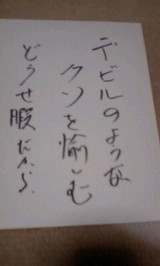 デビルのような
クソを愉しむ
どうせ暇だから、